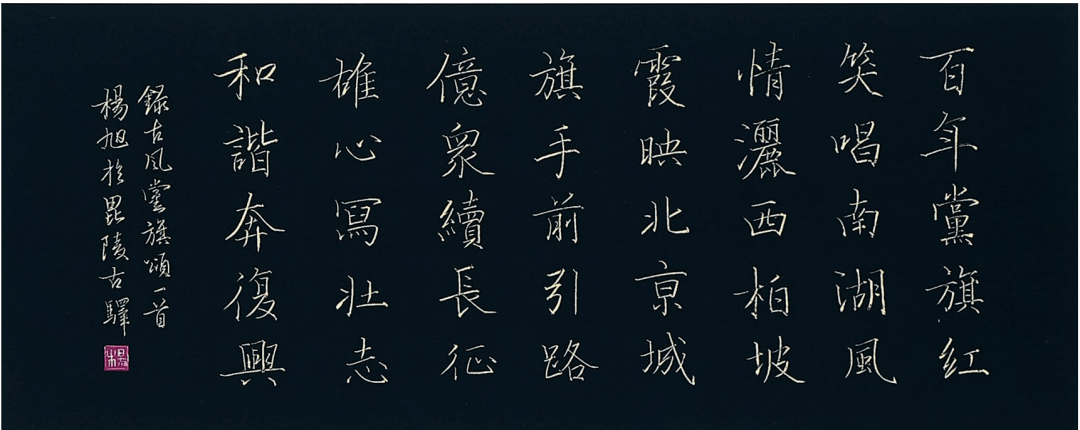 百年黨旗紅
笑唱南湖風
情灑西柏坡
霞映北京城
旗手前引路
億衆續長征
雄心寫壯志
和諧奔復興
錄古風黨旗頌一首
楊旭於毘陵古驛
楊